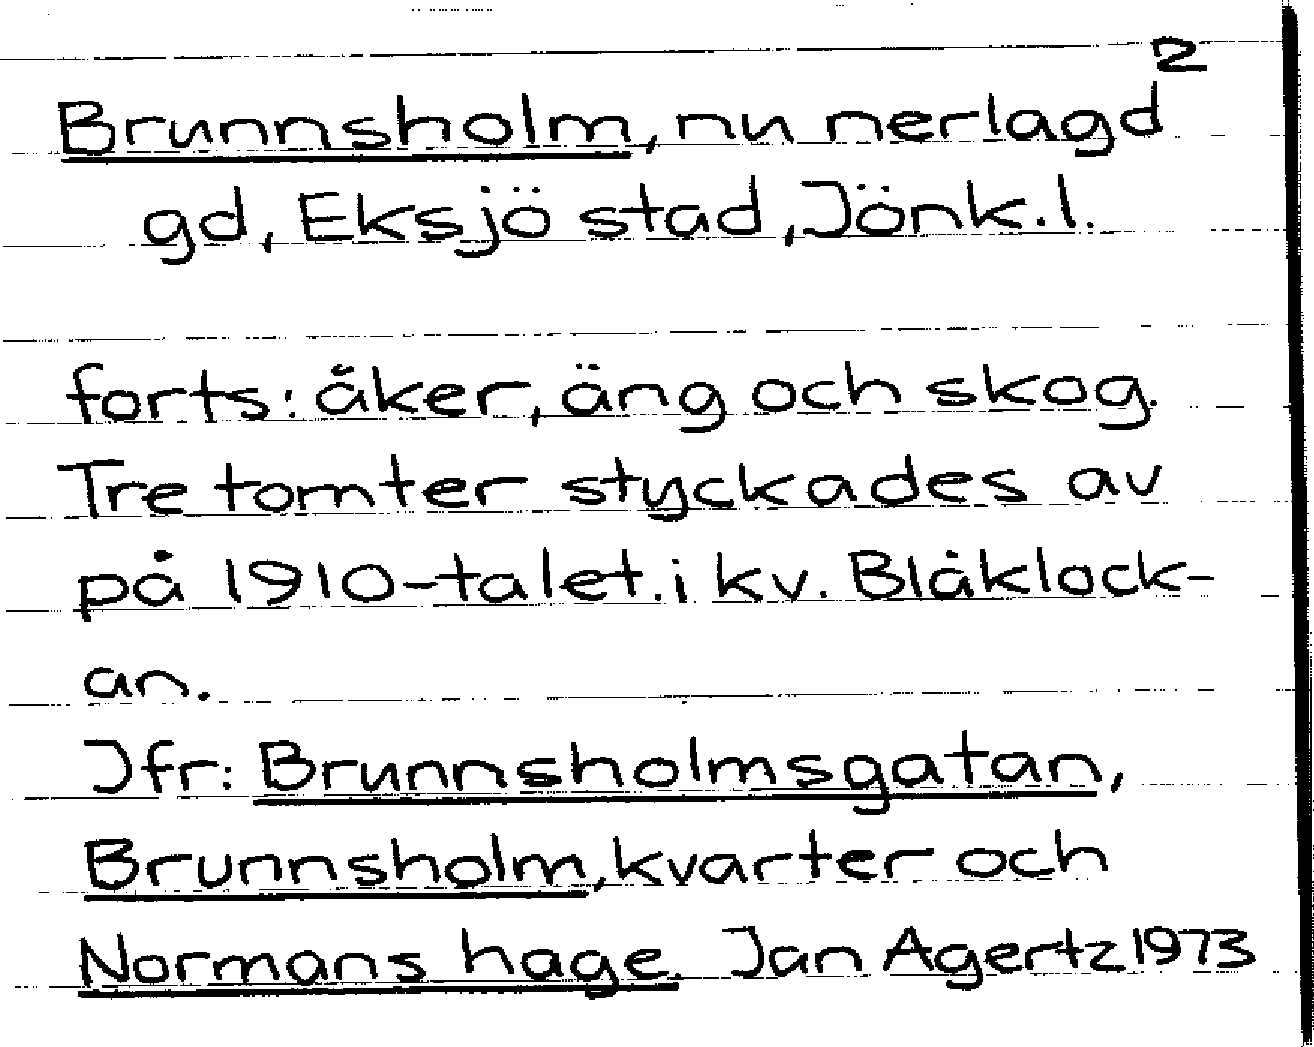 2
Brunnsholm, nu nerlagd
gd, Eksjö stad, Jönk.l.
forts: åker, äng och skog.
Tre tomter styckades av
på 1910-talet.i kv. Blåklock-
an.
Jfr: Brunnsholmsgatan,
Brunnsholm, kvarter och
Normans hage. Jan Agertz 1973